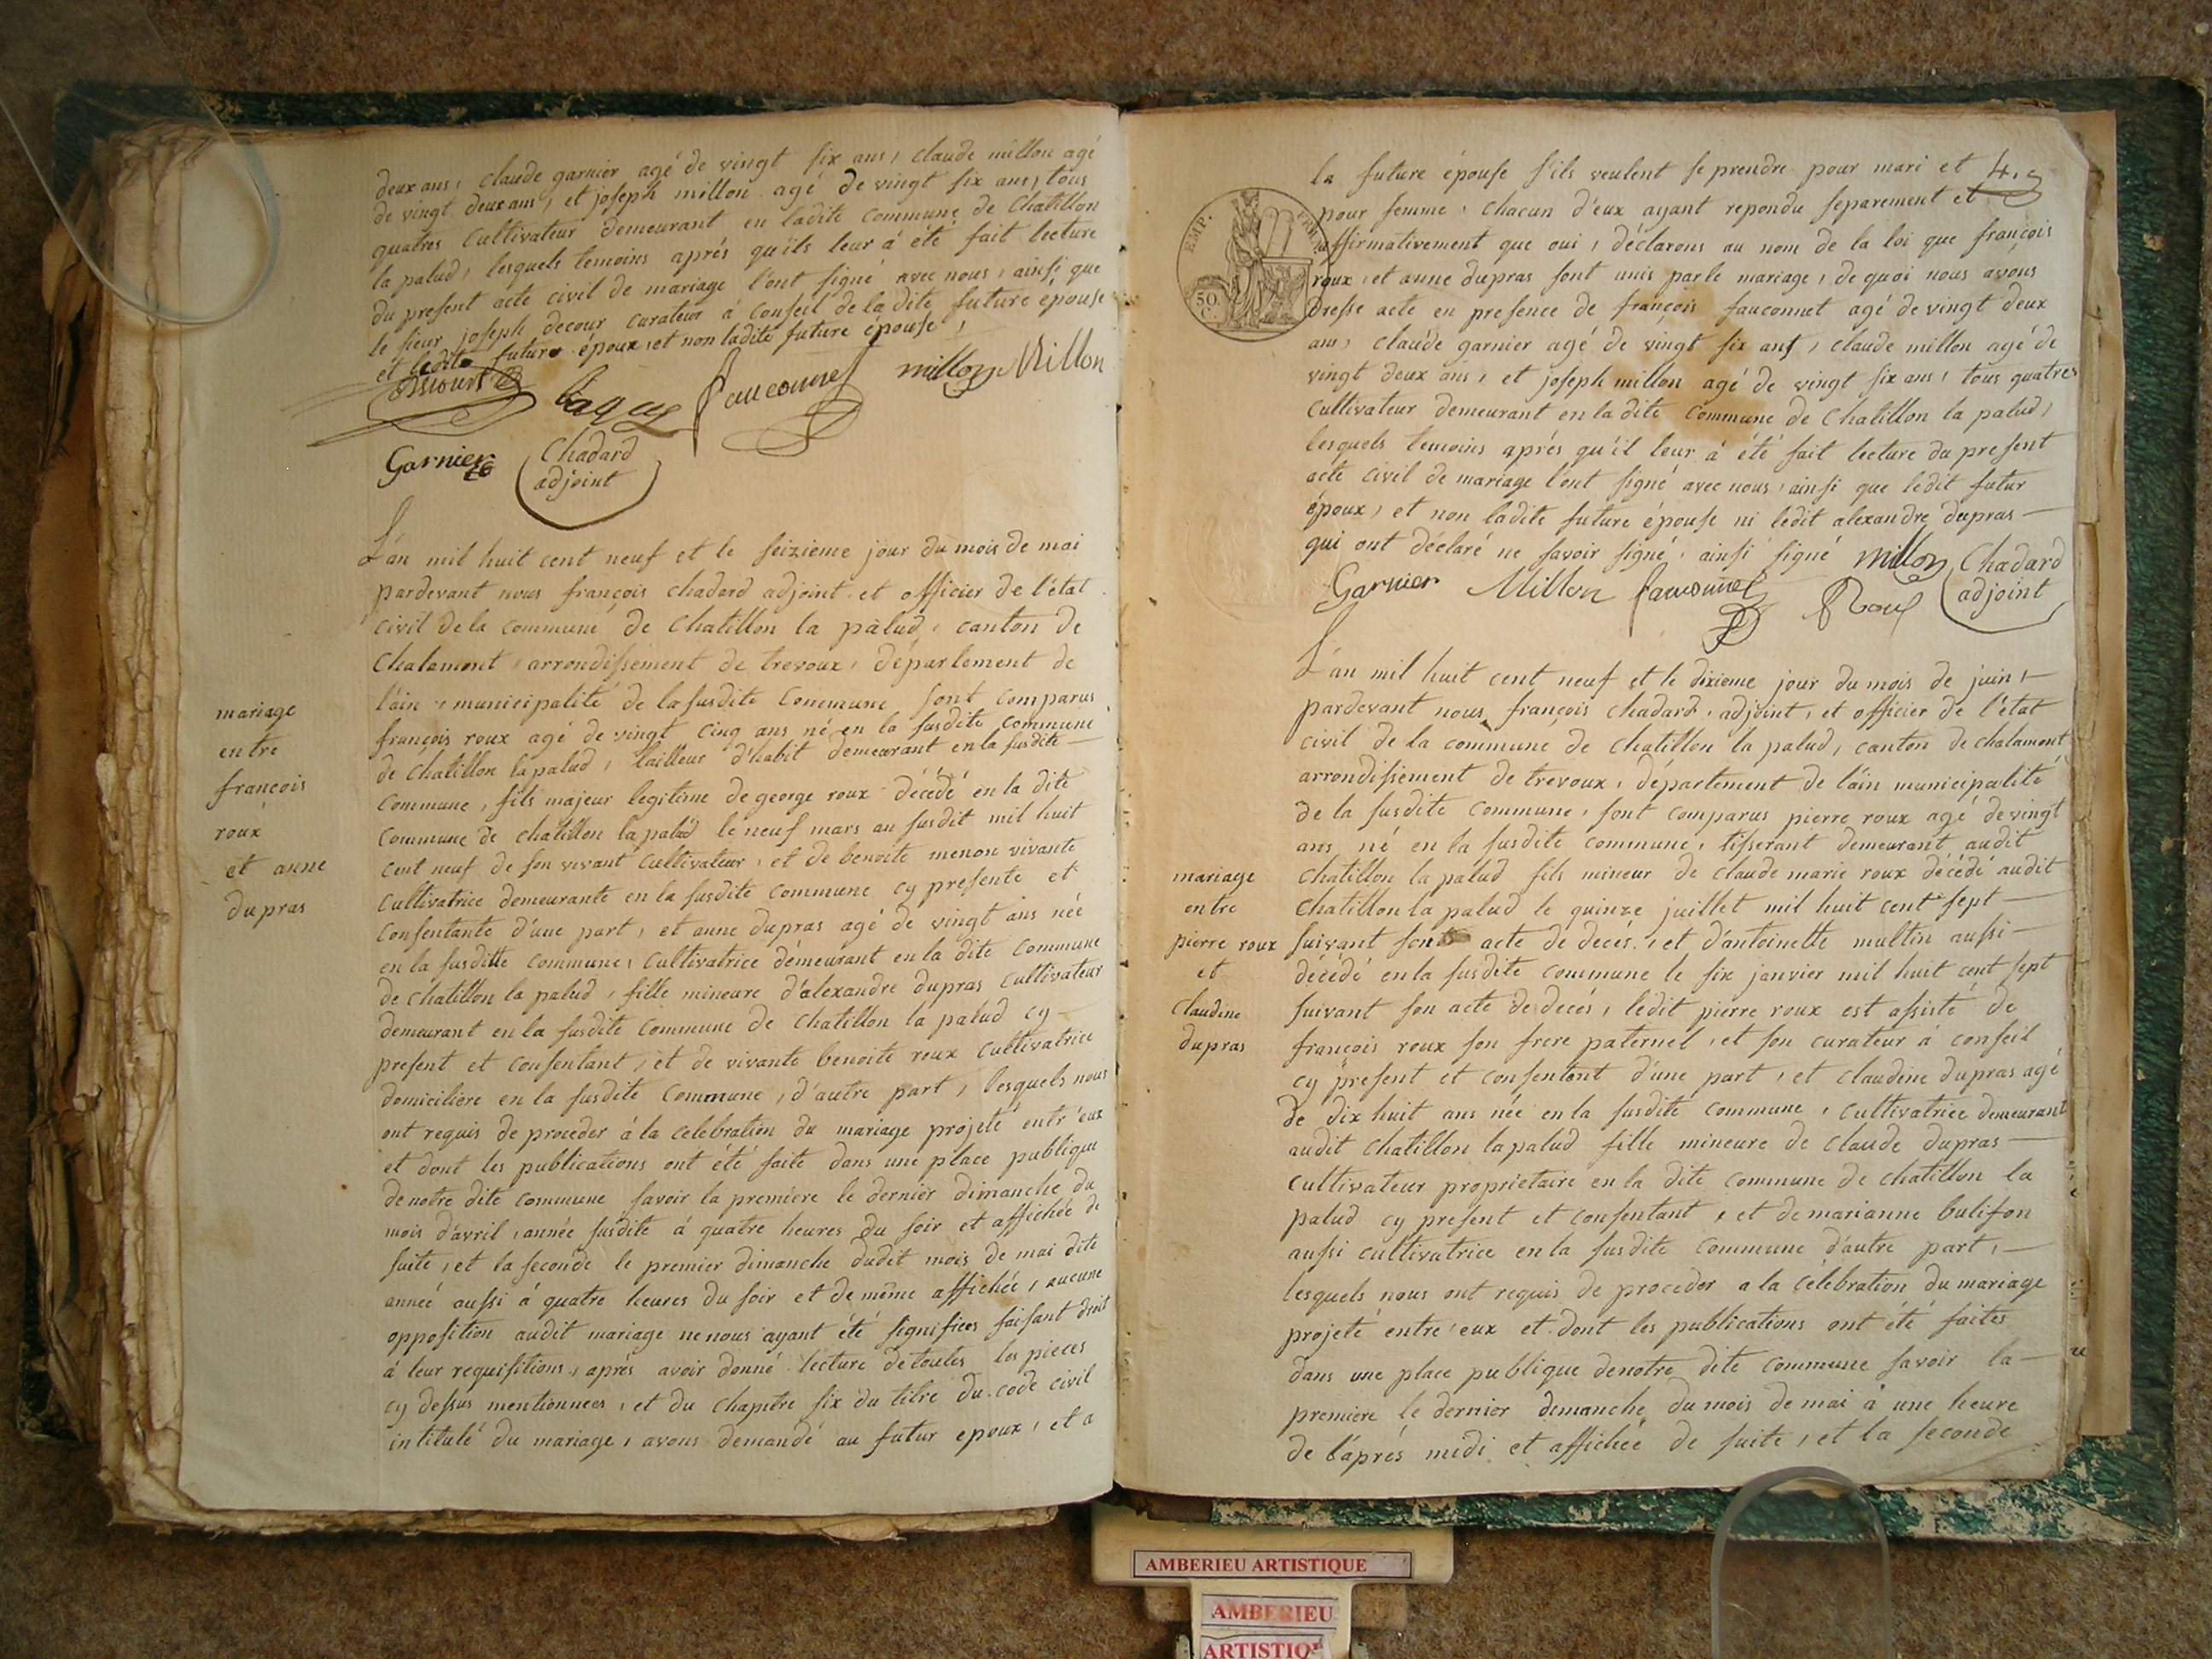 deux ans, claude garnier agé de vingt six ans, claude millon agé
de vingt deux ans, et joseph millon agé de vingt six ans, tous
quatres Cultivateur demeurant en ladite Commune de Chatillon
la palud, lesquels temoins aprés qu'ils leur á été fait lecture
du present acte civil de mariage l'ont signé avec nous, ainsi que
le sieur joseph decour curateur á Conseil de la dite future épouse
et ledite future époux, et non ladite future épouse,
fauconnet millon Millon
Garnier Chadard
adjoint
L'an mil huit cent neuf et le seizieme jour du mois de mai
pardevant nous françois chadard adjoint et officier de l'état
civil de la commune de Chatillon la palud, canton de
Chalamont, arrondissement de trevoux, département de
l'ain, municipalité de la susdite Commune sont comparus
françois roux agé de vingt cinq ans né en la susdite commune
de chatillon la palud, tailleur d'habit demeurant en la susdite
commune, fils majeur legitime de george roux décédé en la dite
commune de chatillon la palud le neuf mars an susdit mil huit
cent neuf de son vivant cultivateur, et de benoite menon vivante
cultivatrice demeurante en la susdite commune cy presente et
consentante d'une part, et anne dupras agé de vingt ans née
en la susditte commune, cultivatrice demeurant en la dite commune
de chatillon la palud, fille mineure d'alexandre dupras cultivateur
demeurant en la susdite commune de chatillon la palud cy-
present et consentant, et de vivante benoite roux cultivatrice
domiciliere en la susdite commune, d'autre part, lesquels nous
ont requis de proceder á la celebration du mariage projeté entr'eux
et dont les publications ont été faite dans une place publique
de notre dite commune savoir la premiere le dernier dimanche du
mois d'avril, année susdite á quatre heures du soir et affichée de
suite, et la seconde le premier dimanche dudit mois de mai dite
année aussi á quatre heures du soir et de même affichée, aucune
opposition audit mariage ne nous ayant été signifiees faisant droit
á leur requisitions, aprés avoir donné lecture de toutes les pieces
cy dessus mentionnees, et du chapitre six du titre du code civil
intitulé du mariage, avons demandé au futur epoux, et a
mariage
entre
françois
roux
et anne
dupras
EMP.
50.
C.
la future épouse s'ils veulent se prendre pour mari et
pour femme, chacun d'eux ayant repondu separement et
affirmativement que oui, déclarons au nom de la loi que françois
roux, et anne dupras sont unis par le mariage, de quoi nous avons
dresse acte en presence de françois fauconnet agé de vingt deux
ans, claude garnier agé de vingt six ans, claude millon agé de
vingt deux ans, et joseph millon agé de vingt six ans, tous quatres
cultivateur demeurant en la dite commune de Chatillon la palud,
lesquels temoins aprés qu'il leur á été fait lecture du present
acte civil de mariage l'ont signé avec nous, ainsi que ledit futur
époux, et non ladite future épouse ni ledit alexandre dupras
qui ont déclaré ne savoir signé, ainsi signé millon Chadard
Garnier Millon fauconnet Roux adjoint
L'an mil huit cent neuf et le dixieme jour du mois de juin,
pardevant nous françois chadard, adjoint, et officier de l'état
civil de la commune de chatillon la palud, canton de chalamont
arrondissement de trevoux, département de l'ain municipalité
de la susdite commune, sont comparus pierre roux agé de vingt
ans né en la susdite commune, tisserant demeurant audit
chatillon la palud fils mineur de claude marie roux décédé audit
chatillon la palud le quinze juillet mil huit cent sept
suivant son acte de decés, et d'antoinette multin aussi
décédé en la susdite commune le six janvier mil huit cent sept
suivant son acte de decés, ledit pierre roux est assisté de
françois roux son frere paternel, et son curateur á conseil
cy present et consentant d'une part, et claudine dupras agé
de dix huit ans née en la susdite commune, cultivatrice demeurant
audit chatillon la palud fille mineure de claude dupras
cultivateur proprietaire en la dite commune de chatillon la
palud cy present et consentant, et de marianne bulifon
aussi cultivatrice en la susdite commune d'autre part,
lesquels nous ont requis de proceder a la célebration du mariage
projeté entre eux et dont les publications ont été faites
dans une place publique de notre dite commune savoir la
premiere le dernier demanche du mois de mai á une heure
de l'aprés midi et affichée de suite, et la seconde
mariage
entre
pierre roux
et
claudine
dupras
AMBERIEU ARTISTIQUE
AMBERIEU